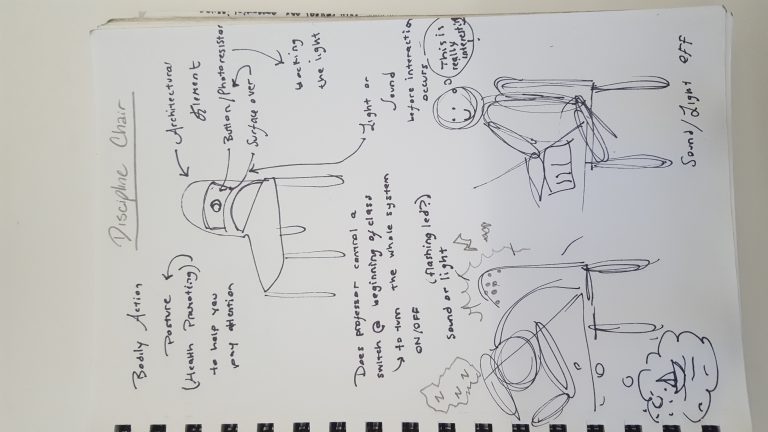 Discipline Chair
Bodily Action
Posture
(Health Promoting)
to help you
pay attention
Architectural
Element
Button/Photoresistor
Surface over
blocking
the light
Light or
Sound
before interaction
occurs
Does professor control a
switch @ beginning of class
to turn the whole system
ON/OFF
(flashing led?)
Sound or light
This is
really
interesting
Sound/Light off
Z
Z
Z